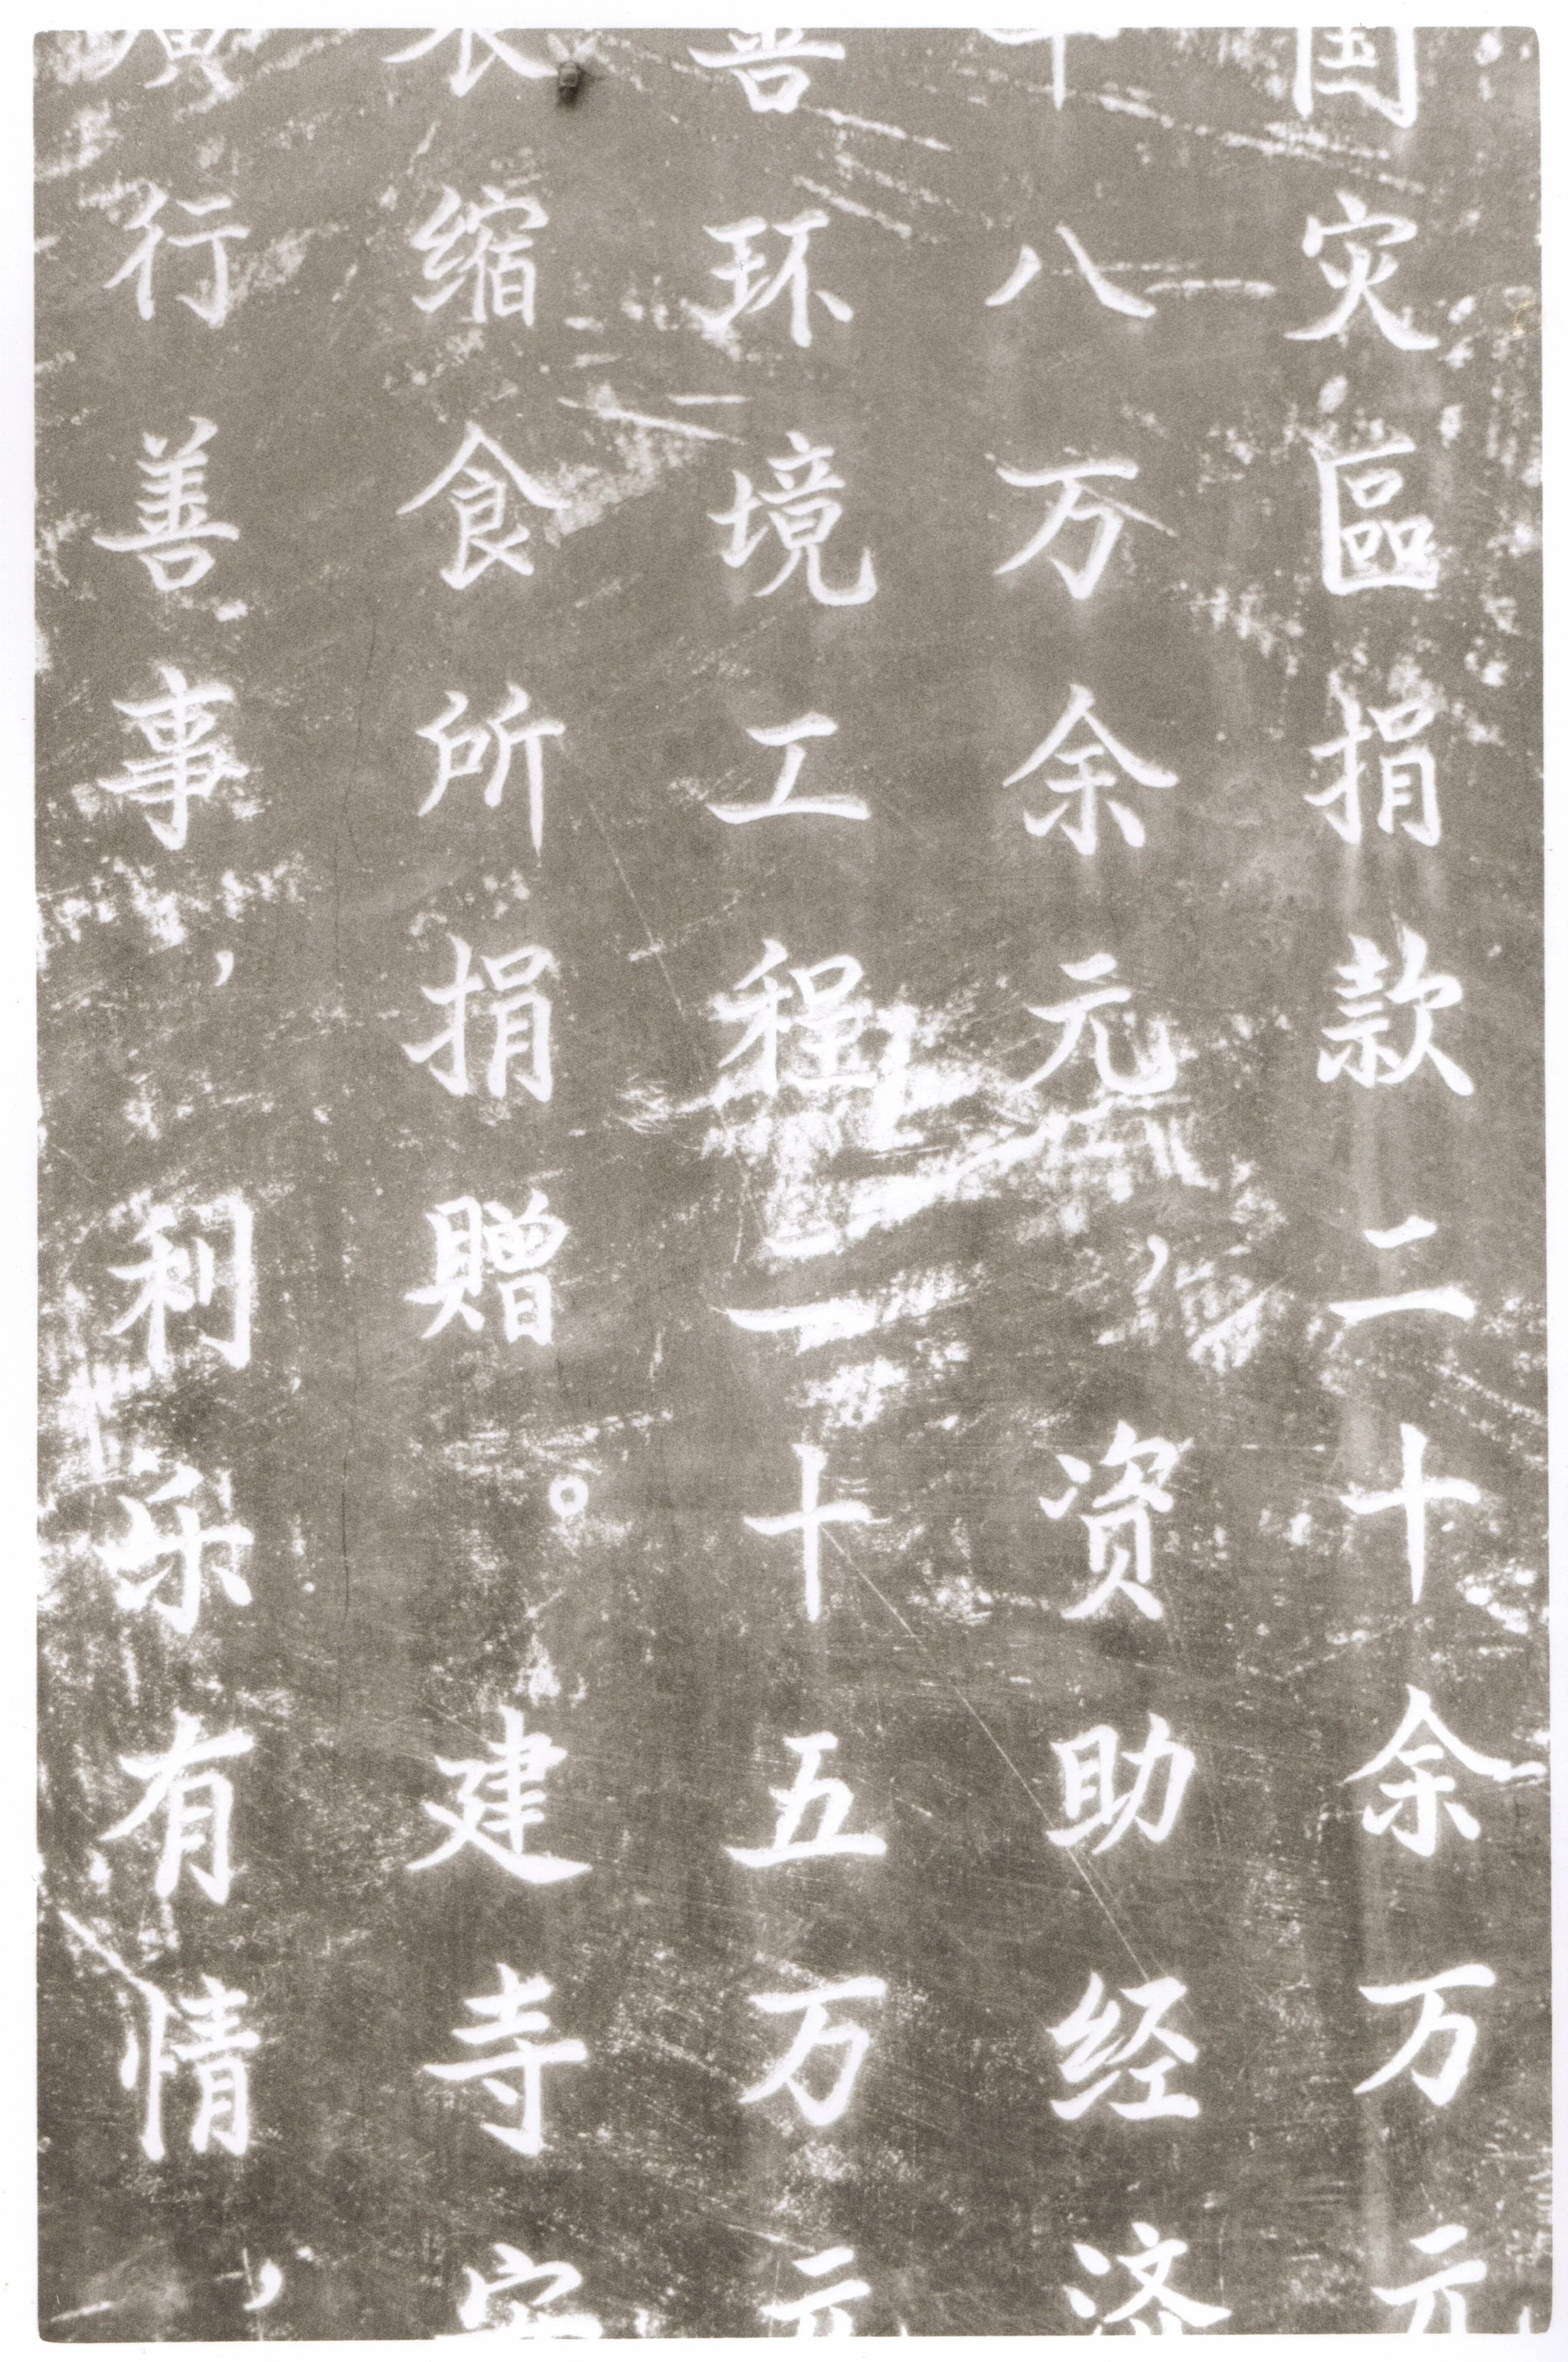 国灾區捐款二十余万元
八万余元，资助经济
善环境工程二十五万元
衣缩食所捐赠。建寺安
广行善事，利乐有情，